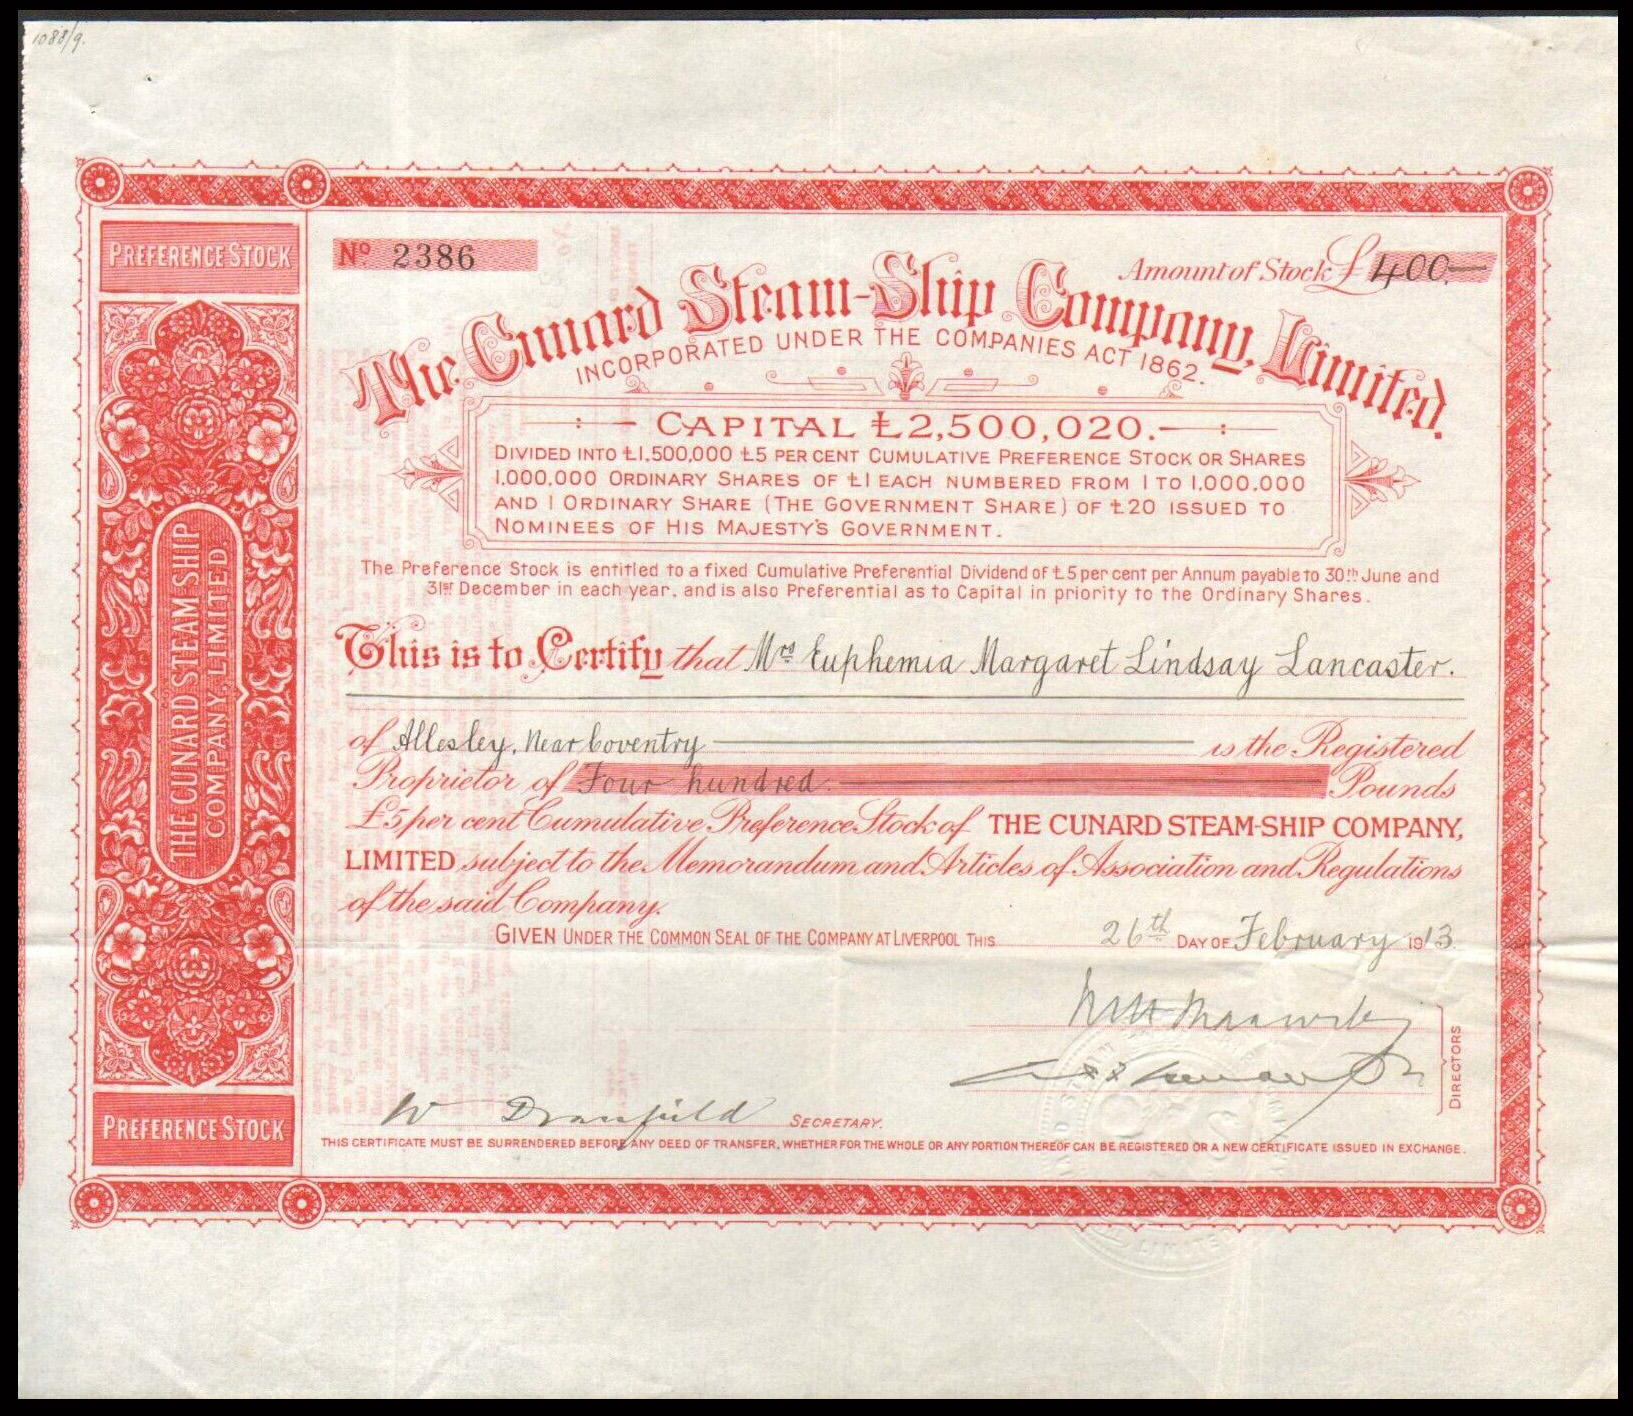 1088/9.
PREFERENCE STOCK
Nº 2386
Amount of Stock £ 400.—
The Cunard Steam-Ship Company, Limited.
INCORPORATED UNDER THE COMPANIES ACT 1862.
CAPITAL £2,500,020.
DIVIDED INTO £1,500,000 £5 PER CENT CUMULATIVE PREFERENCE STOCK OR SHARES
1,000,000 ORDINARY SHARES OF £1 EACH NUMBERED FROM 1 TO 1,000,000
AND 1 ORDINARY SHARE (THE GOVERNMENT SHARE) OF £20 ISSUED TO
NOMINEES OF HIS MAJESTY'S GOVERNMENT.
The Preference Stock is entitled to a fixed Cumulative Preferential Dividend of £5 per cent per Annum payable to 30th June and
31st December in each year, and is also Preferential as to Capital in priority to the Ordinary Shares.
This is to Certify that Mrs Euphemia Margaret Lindsay Lancaster.
of Allesley, Near Coventry is the Registered
Proprietor of Four hundred Pounds
£5 per cent Cumulative Preference Stock of THE CUNARD STEAM-SHIP COMPANY,
LIMITED subject to the Memorandum and Articles of Association and Regulations
of the said Company.
GIVEN UNDER THE COMMON SEAL OF THE COMPANY AT LIVERPOOL THIS 26th DAY OF February 1913.
DIRECTORS
W Dranfield SECRETARY.
THIS CERTIFICATE MUST BE SURRENDERED BEFORE ANY DEED OF TRANSFER, WHETHER FOR THE WHOLE OR ANY PORTION THEREOF CAN BE REGISTERED OR A NEW CERTIFICATE ISSUED IN EXCHANGE.
THE CUNARD STEAM-SHIP
COMPANY, LIMITED
PREFERENCE STOCK
LIMITED